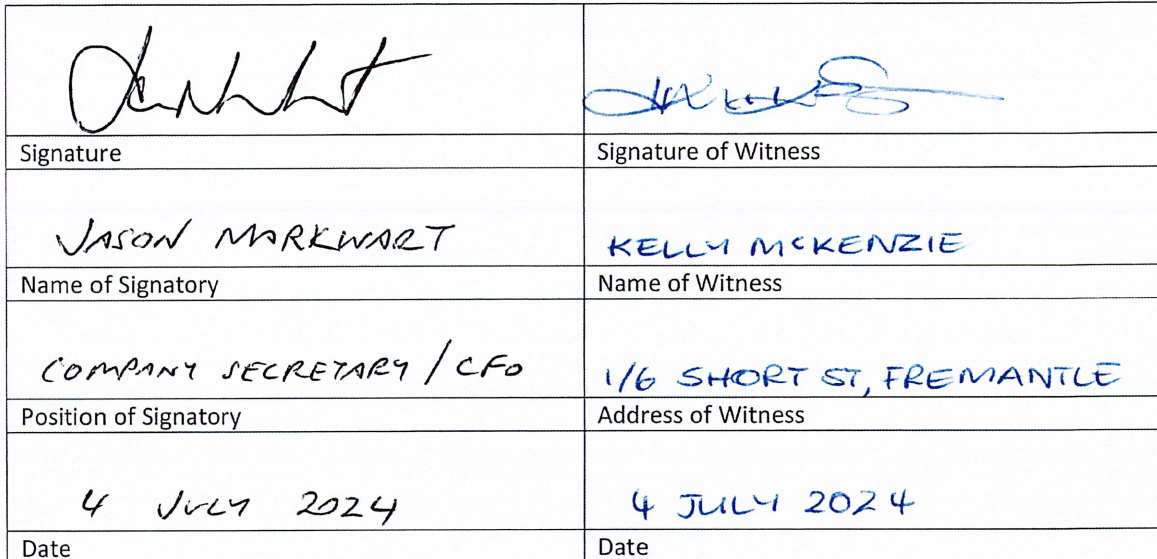 Signature
Signature of Witness
JASON MARKWART
KELLY MCKENZIE
Name of Signatory
Name of Witness
COMPANY SECRETARY / CFO
1/6 SHORT ST, FREMANTLE
Position of Signatory
Address of Witness
4 JULY 2024
4 JULY 2024
Date
Date